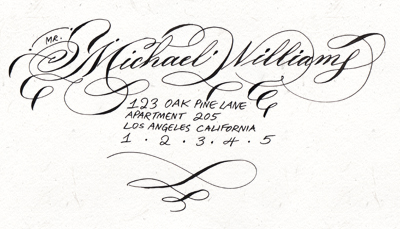 MR.
Michael Williams
123 OAK PINE LANE
APARTMENT 205
LOS ANGELES CALIFORNIA
1 · 2 · 3 · 4 · 5